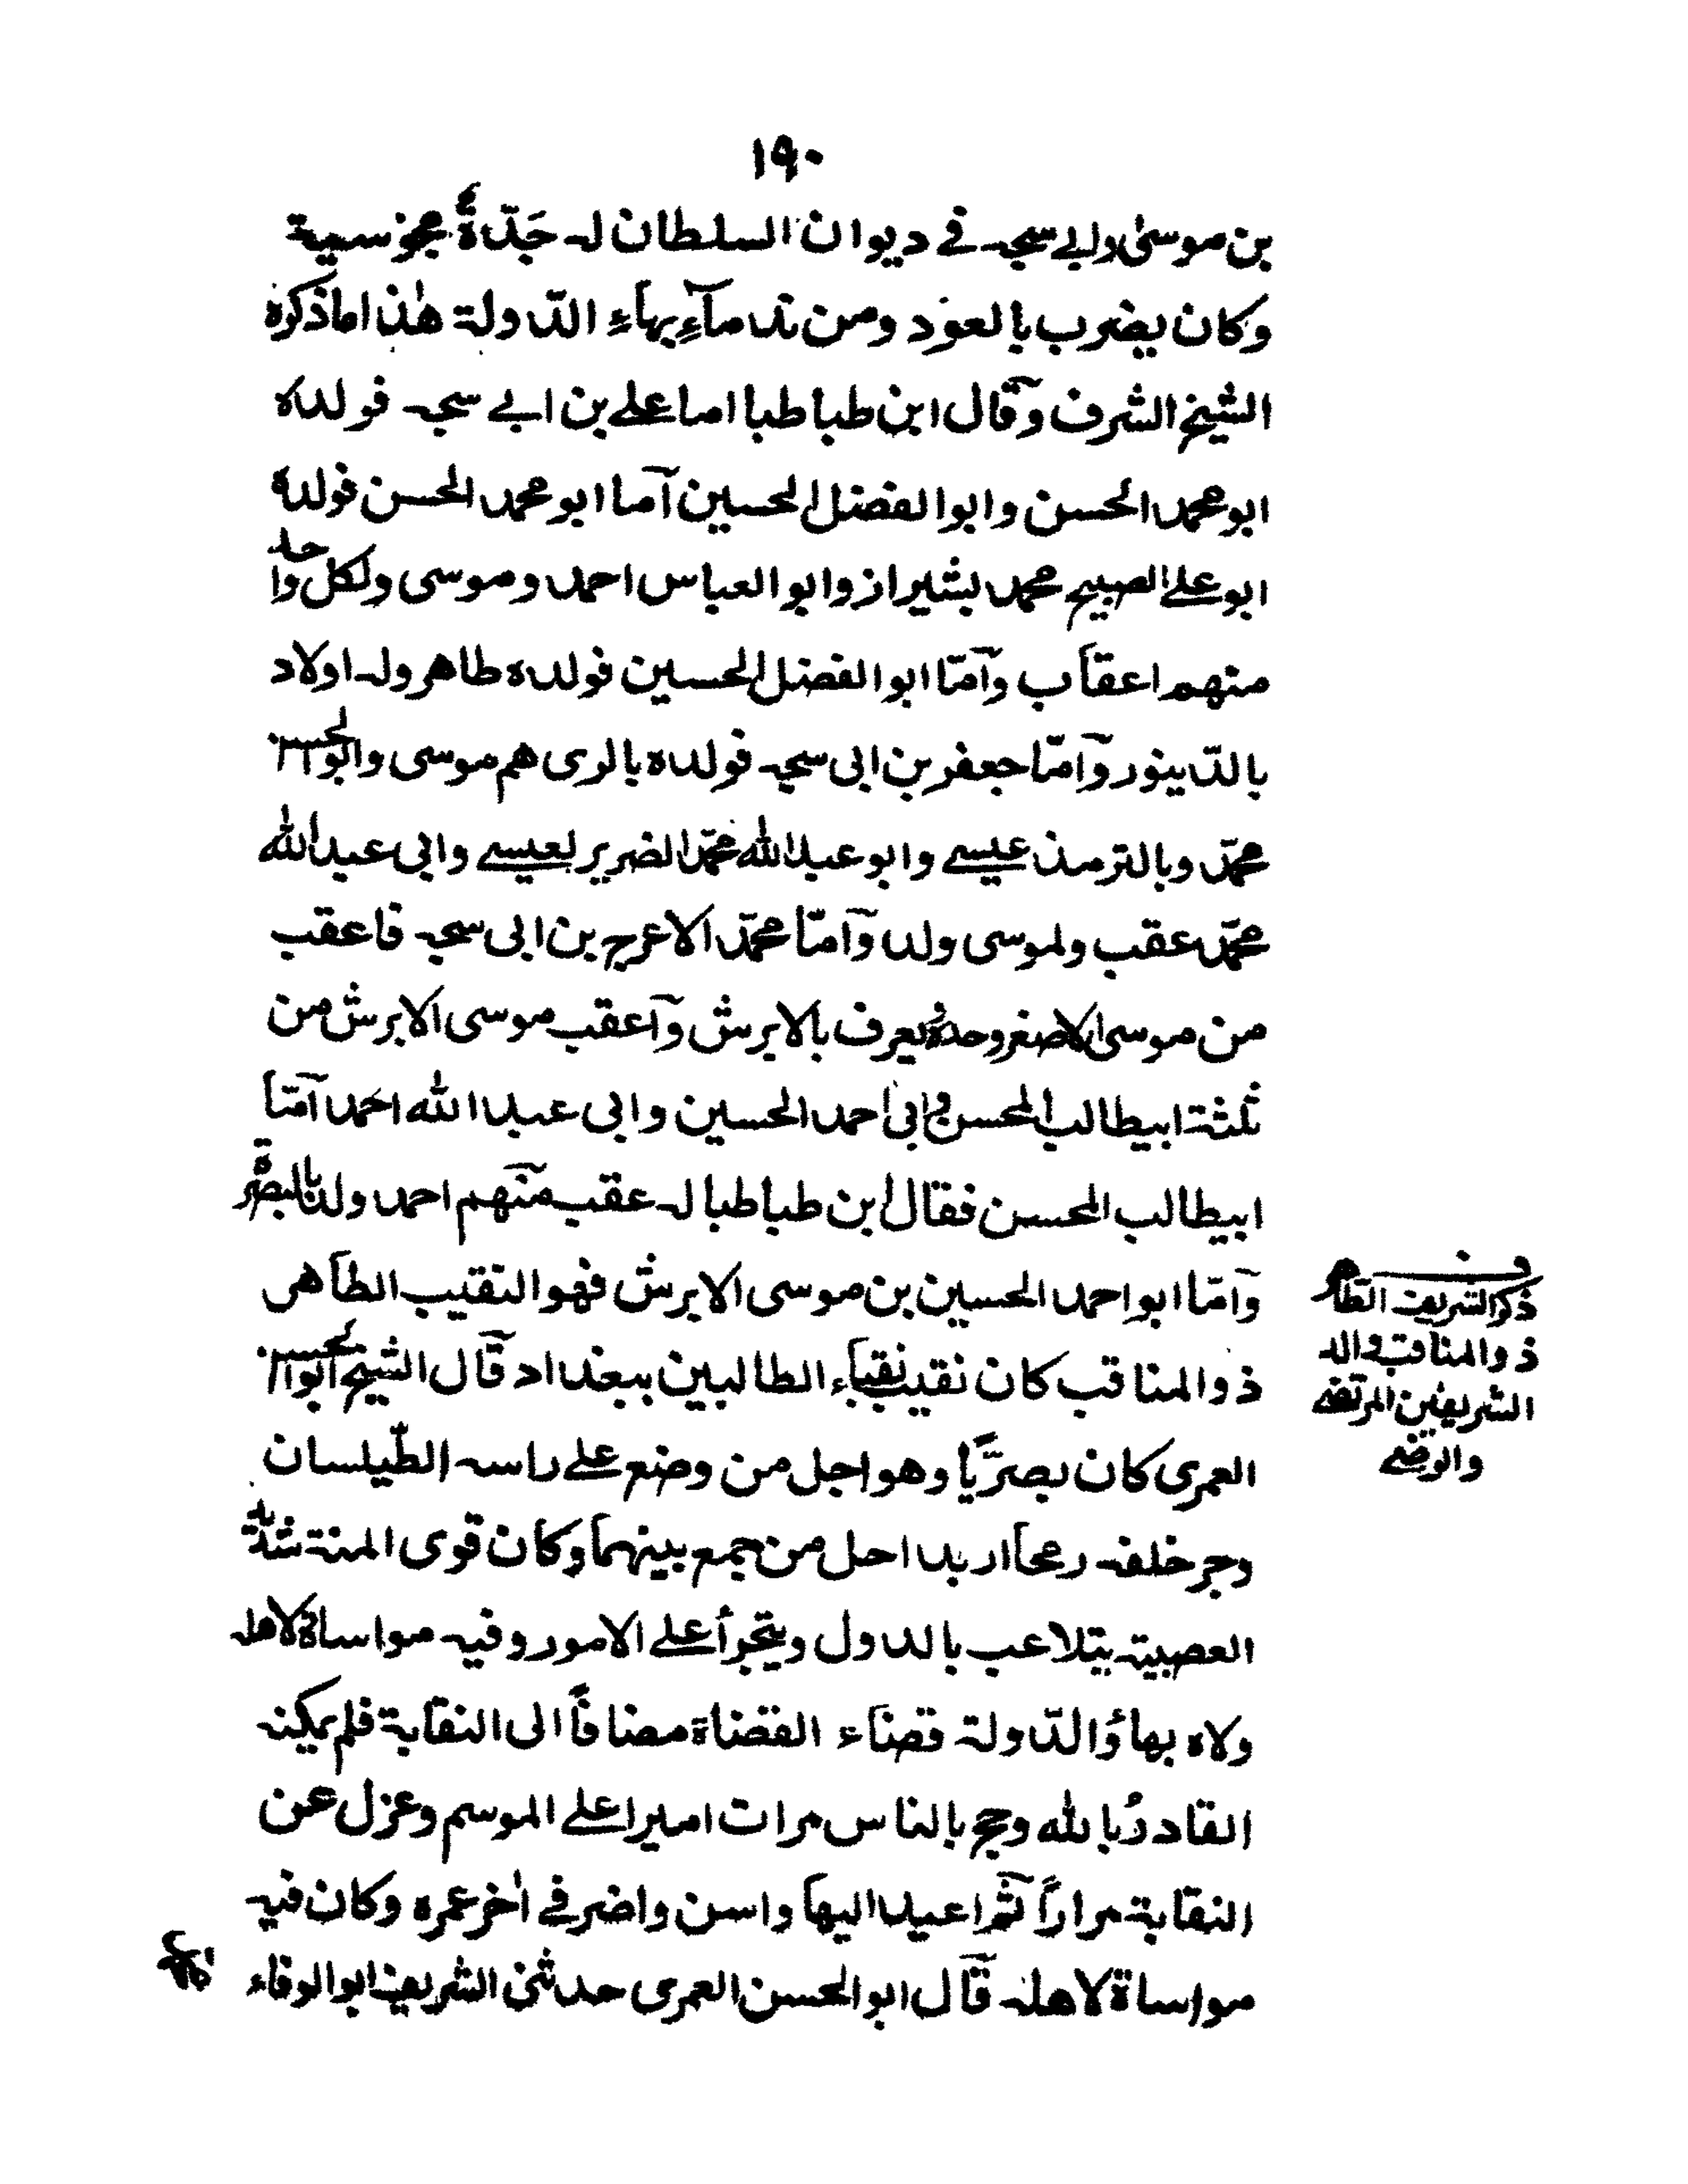 ١٩٠
بن موسى وابي سبحه في ديوان السلطان له جَدّةٌ مجوسية
وكان يضرب بالعود ومن ندمآءِ بهاءِ الدّولة هٰذا ما ذكره
الشيخ الشرف وقال ابن طباطبا اما علے بن ابے سبحه فولده
ابو محمد الحسن وابو الفضل الحسين آما ابو محمد الحسن فولده
ابو علے الصبيح محمد بشيراز وابو العباس احمد وموسى ولكل واحد
منهم اعقاب وآمّا ابو الفضل الحسين فولده طاهر وله اولاد
بالدّينور وآمّا جعفر بن ابى سبحه فولده بالرى هم موسى وابو الحسن
محمّد وبالترمذ عيسے وابو عبد الله محمّد الضرير لعيسے وابى عبد الله
محمّد عقب ولموسى ولد وآمّا محمّد الاعرج بن ابى سبحه فاعقب
من موسى الاصغر وحدهُ يعرف بالابرش وآعقب موسى الابرش من
ثلثة ابيطالب المحسن وابى احمد الحسين وابى عبد الله احمد آمّا
ابيطالب المحسن فقال ابن طباطبا له عقب منهم احمد ولد بالبصرة
وآمّا ابو احمد الحسين بن موسى الابرش فهو النقيب الطاهر
ذو المناقب كان نقيب نقباء الطالبين ببغداد قال الشيخ ابو الحسن
العمرى كان بصرّيًا وهو اجل من وضع على راسه الطّيلسان
وجر خلفه رمحا اريد احل من جمع بينهما وكان قوى المنة شديد
العصبية يتلاعب بالدول ويتجرأ علے الامور وفيه مواساة لاهله
ولاه بهاؤ الدّولة قضاء القضاة مضافًا الى النقابة فلم يمكنه
القادرُ بالله وحج بالناس مرات اميرا علے الموسم وعزل عن
النقابة مرارًا ثم اعيد اليها واسن واضر في اٰخر عمره وكان فيه
مواساة لاهله قال ابو الحسن العمرى حدثنى الشريف ابو الوفاء
ذكر الشريف الطاهر
ذو المناقب والد
الشريفين المرتضے
والرضے